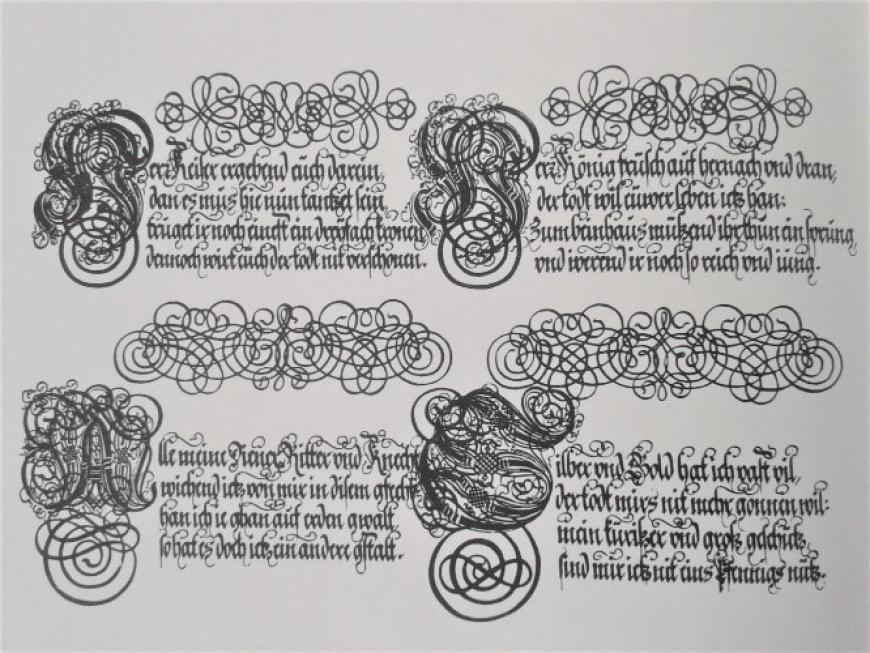 Herr Keiser ergebend euch darein,
dan es mus hie nun tantzet sein
trüget ir noch ein dryfach kronen
dennoch wirt euch der todt nit verschonen.
Herr König auf hernach vnd dran,
der todt wil eüwer leben ietz han:
Zum beinhaus müssend ihr thun ein sprüng,
vnd werend ir noch so reich vnd iüng.
Alle meine Diener Ritter vnd Knecht
wichend ietz von mir in disem gfecht
han ich ie ghan auf erden gwalt,
so hat es doch ietz ein andere gstalt.
Silber vnd Gold hat ich vast vil,
der todt mirs nit mehr gönnen wil:
mein küritzer vnd groß gschütz,
sind mir ietz nit eins Pfennigs nütz.